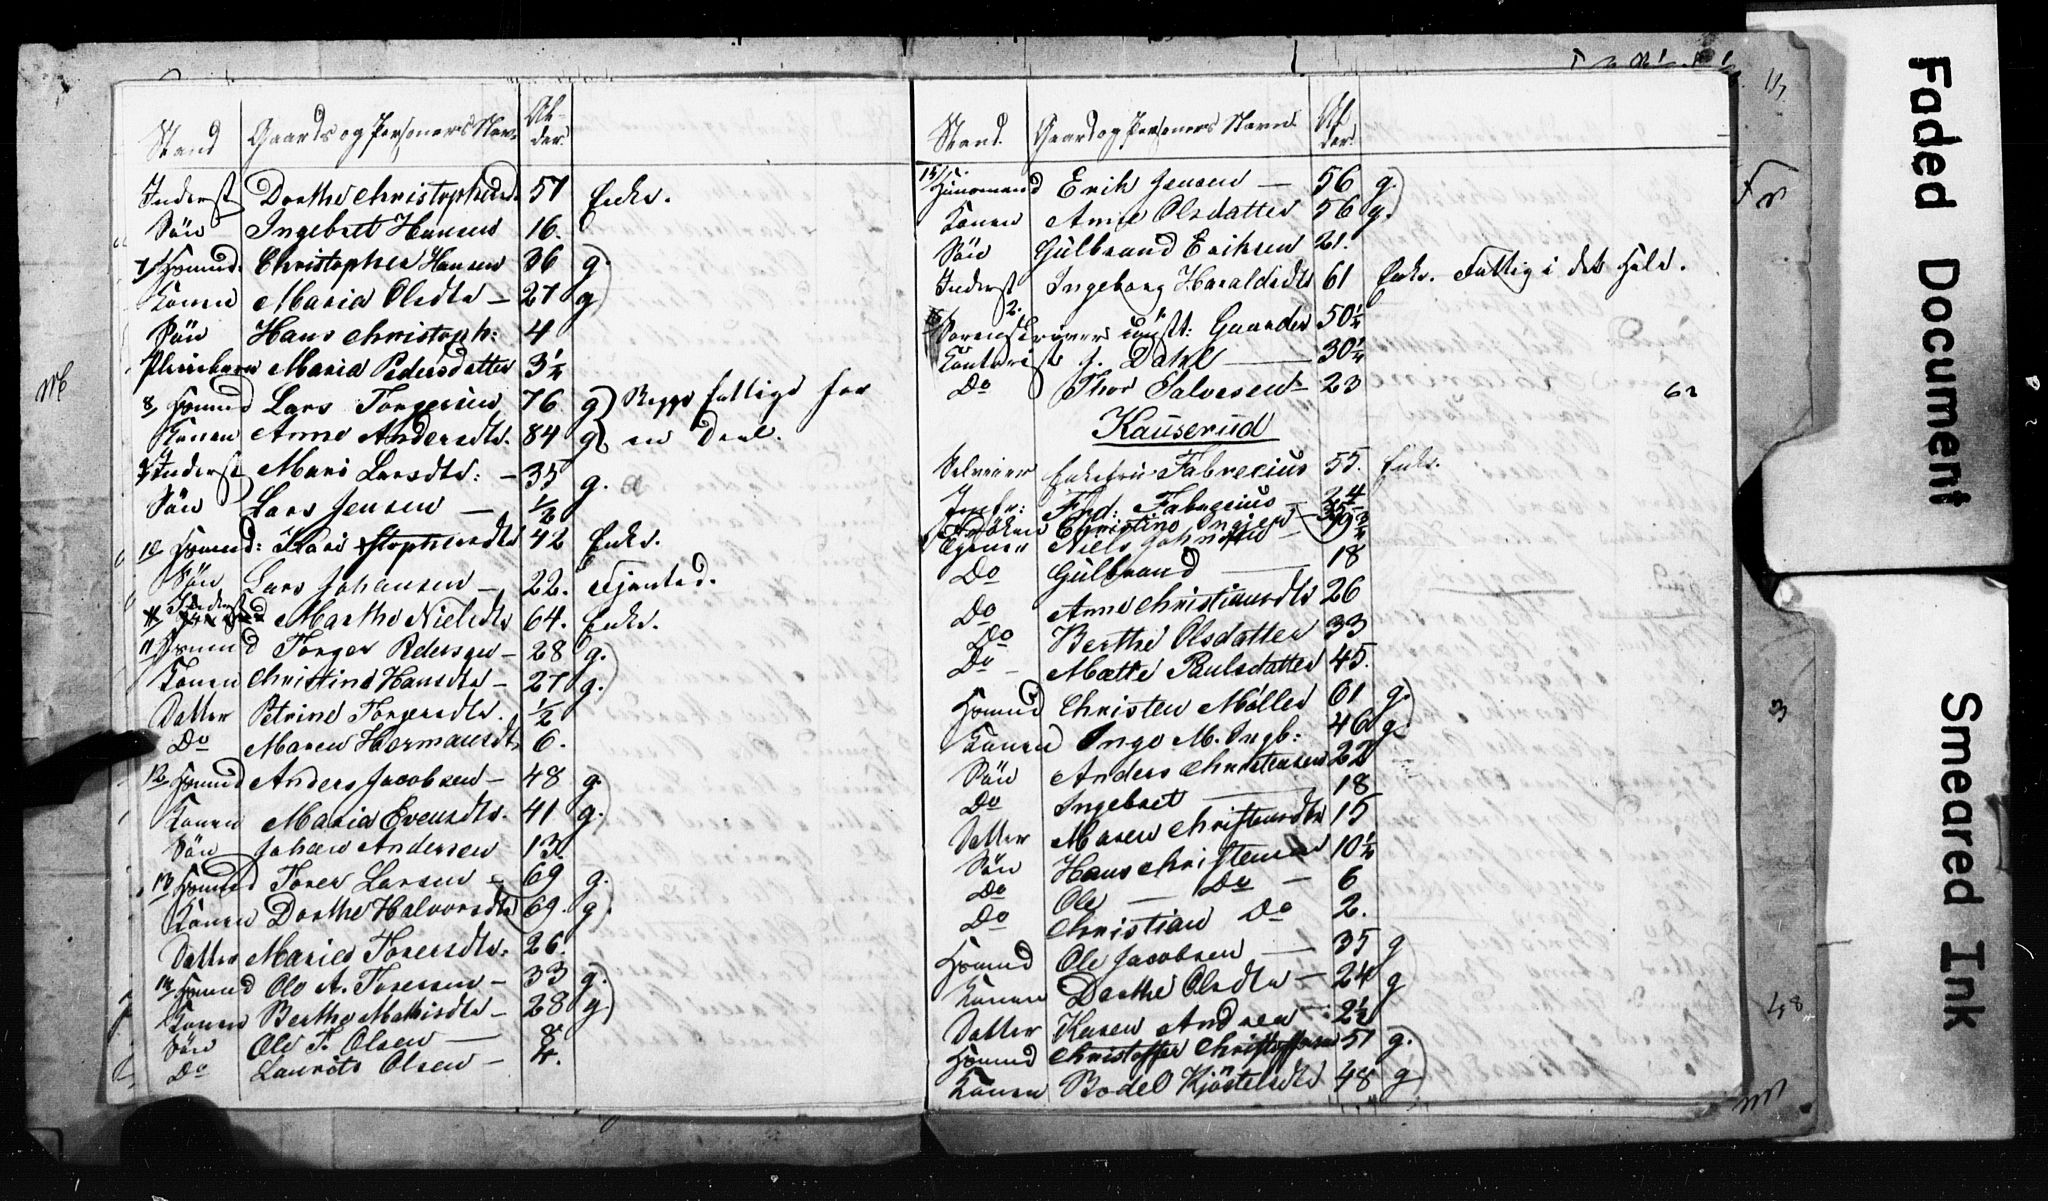 Stand Gaards og Personers Navn Al- der.
Inderst Dorthe Christophersd. 57 Enke.
Sön Ingebret Hansen 16.
7/ Hsmnd. Christopher Hansen 36 g.
Konen Maria Olsdtr — 27 g)
Sön Hans Christoph: 4
Pleiebarn Maria Pedersdatter 3½
8/ Hsmnd Lars Torgersen 76 g) Begge fattige for
Konen Anne Andersdtr. 84 g) en Deel.
Inderst Mari Larsdtr: — 35 g.
Sön Lars Jensen — ½
10 Hsmnd: Kari Stophersdtr 42 Enke.
Sön Lars Johansen — 22. Fjanted.
Inderst Marthe Nielsdtr 64. Enke.
11/ Hsmnd Torger Pedersen — 28 g.)
Konen Christine Hansdtr — 27 g.)
Datter Petrine Torgersdtr. ½
Do Maren Hermansdtr 6.
12/ Hsmnd Anders Jacobsen — 48 g.
Konen Maria Evensdtr. 41 g.)
Sön Johan Andersen 13.
13 Hsmnd Torer Larsen — 69 g.
Konen Dorthe Halvorsdtr 69. g.)
Datter Marie Torersdtr. 26.
14 Hsmnd Ole A. Torersen — 33 g.
Konen Berthe Mathisdtr — 28 g)
Sön Ole T. Olsen — 8
Do Laurits Olsen — 4.
Stand. Gaard og Personers Navn Al- der.
15/ Huusmand Erik Jensen — 56 g.)
Konen Anne Olsdatter 56 g.)
Sön Gulbrand Eriksen 21.
Inderst Ingeborg Haraldsdtr 61 Enke. Fattig i det Hele.
2.
Sorenskriver Gaarder 50½
Kontorist J. Dahl — 30½
Do Thor Salvesen — 23
62
Kauserud
Selveier Enkefru Fabrecius 55. Enke.
Jomfr: Frd: Fabrecius — 24
Fröken Christine Ingier — 39
Tjener Niels Johnsen — 19½
Do Gulbrand — 18
Do Anne Christiansdtr 26
Do Berthe Olsdatter 33
Do — Mætte Paulsdatter 45.
Hsmnd Christen Møller 61 g.)
Konen Inge M. Ingb: 46 g.)
Sön Anders Christensen 22
Do Ingebret — 18
Datter Maren Christensdtr 15
Sön Hans Christensen 10½
Do Ole — Do — 6
Do Christian Do 2.
Hsmnd Ole Jacobsen — 35 g
Konen Dorthe Olsdtr — 24 g
Datter Karen Andrea — 2½
Hsmnd Christoffer Christoffersen 51 g.)
Konen Bodel Kjöstelsdtr 48 g)
Faded Document
Smeared Ink